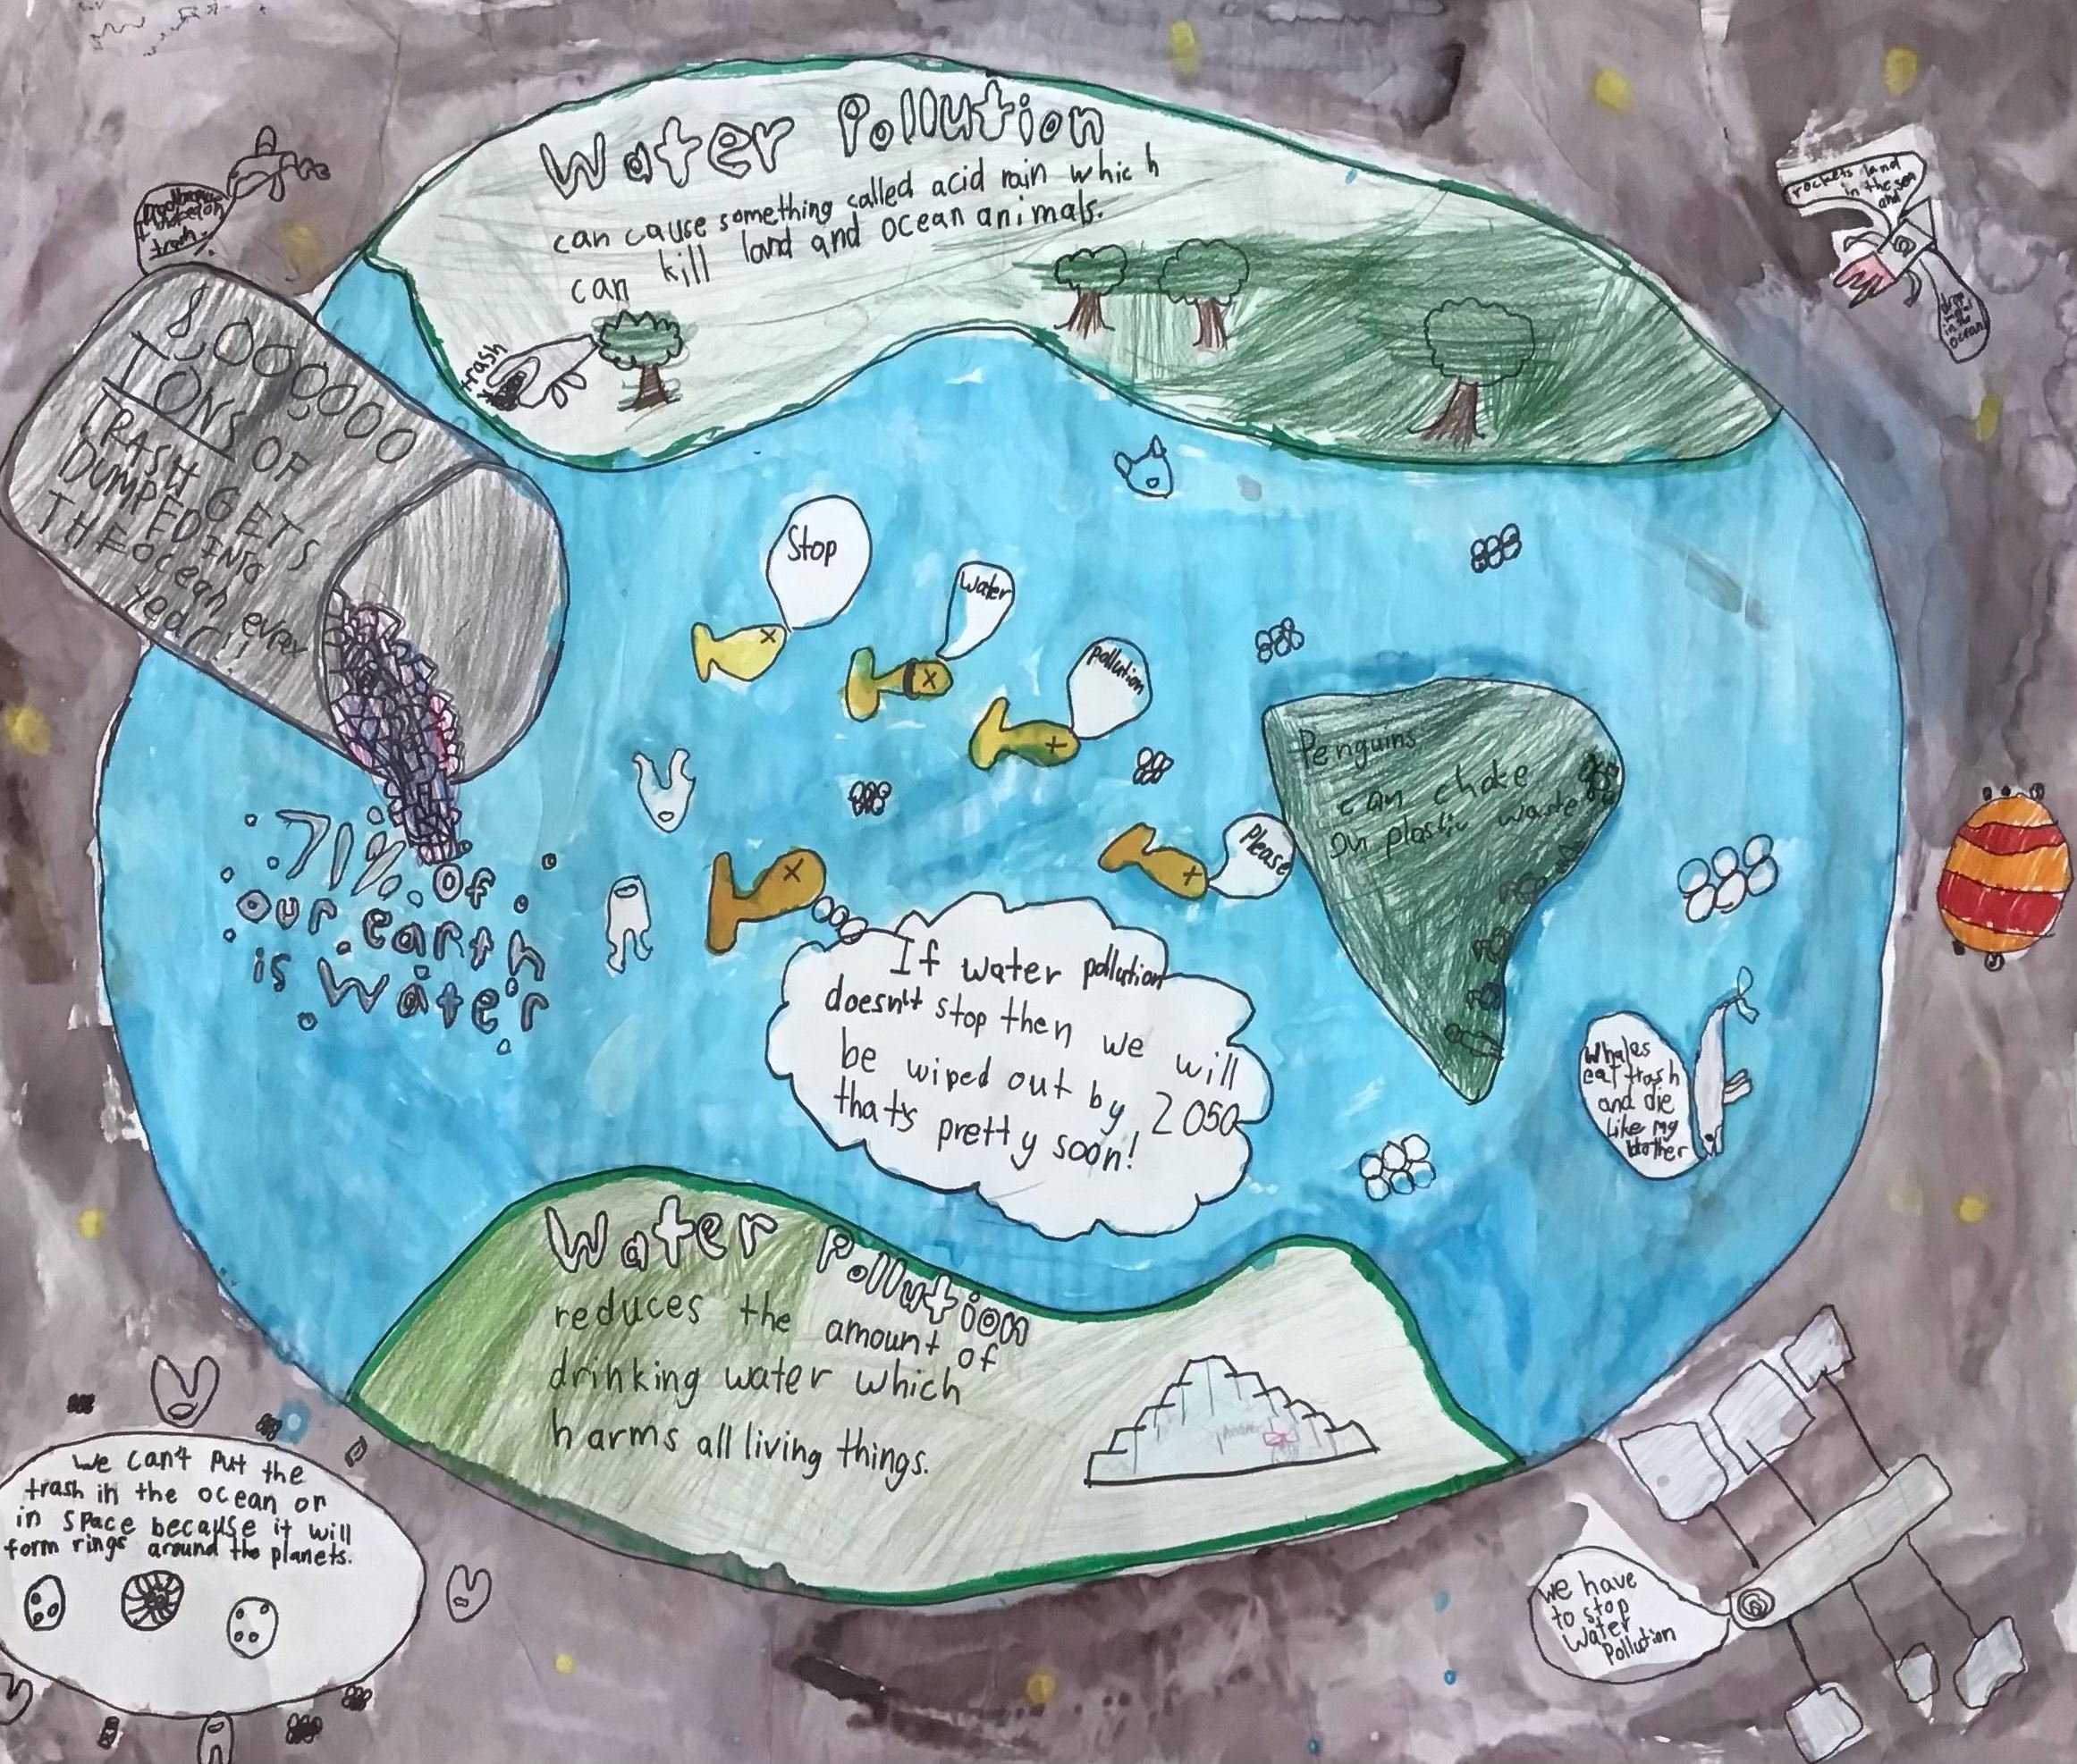 Water Pollution
can cause something called acid rain which
can kill land and ocean animals.
trash
trash.
rockets land
in the sea
and
drop
in the
ocean
TONS OF
TRASH GETS
DUMPED INTO
THE Ocean every
Year!!
Stop
Water
pollution
Please
Penguins
can choke
on plastic waste
71% Of
our earth
is water
If water pollution
doesn't stop then we will
be wiped out by 2050
that's pretty soon!
Whales
eat trash
and die
Like my
brother
Water Pollution
reduces the amount of
drinking water which
harms all living things.
We can't put the
trash in the ocean or
in space because it will
form rings around the planets.
We have
to stop
Water
Pollution